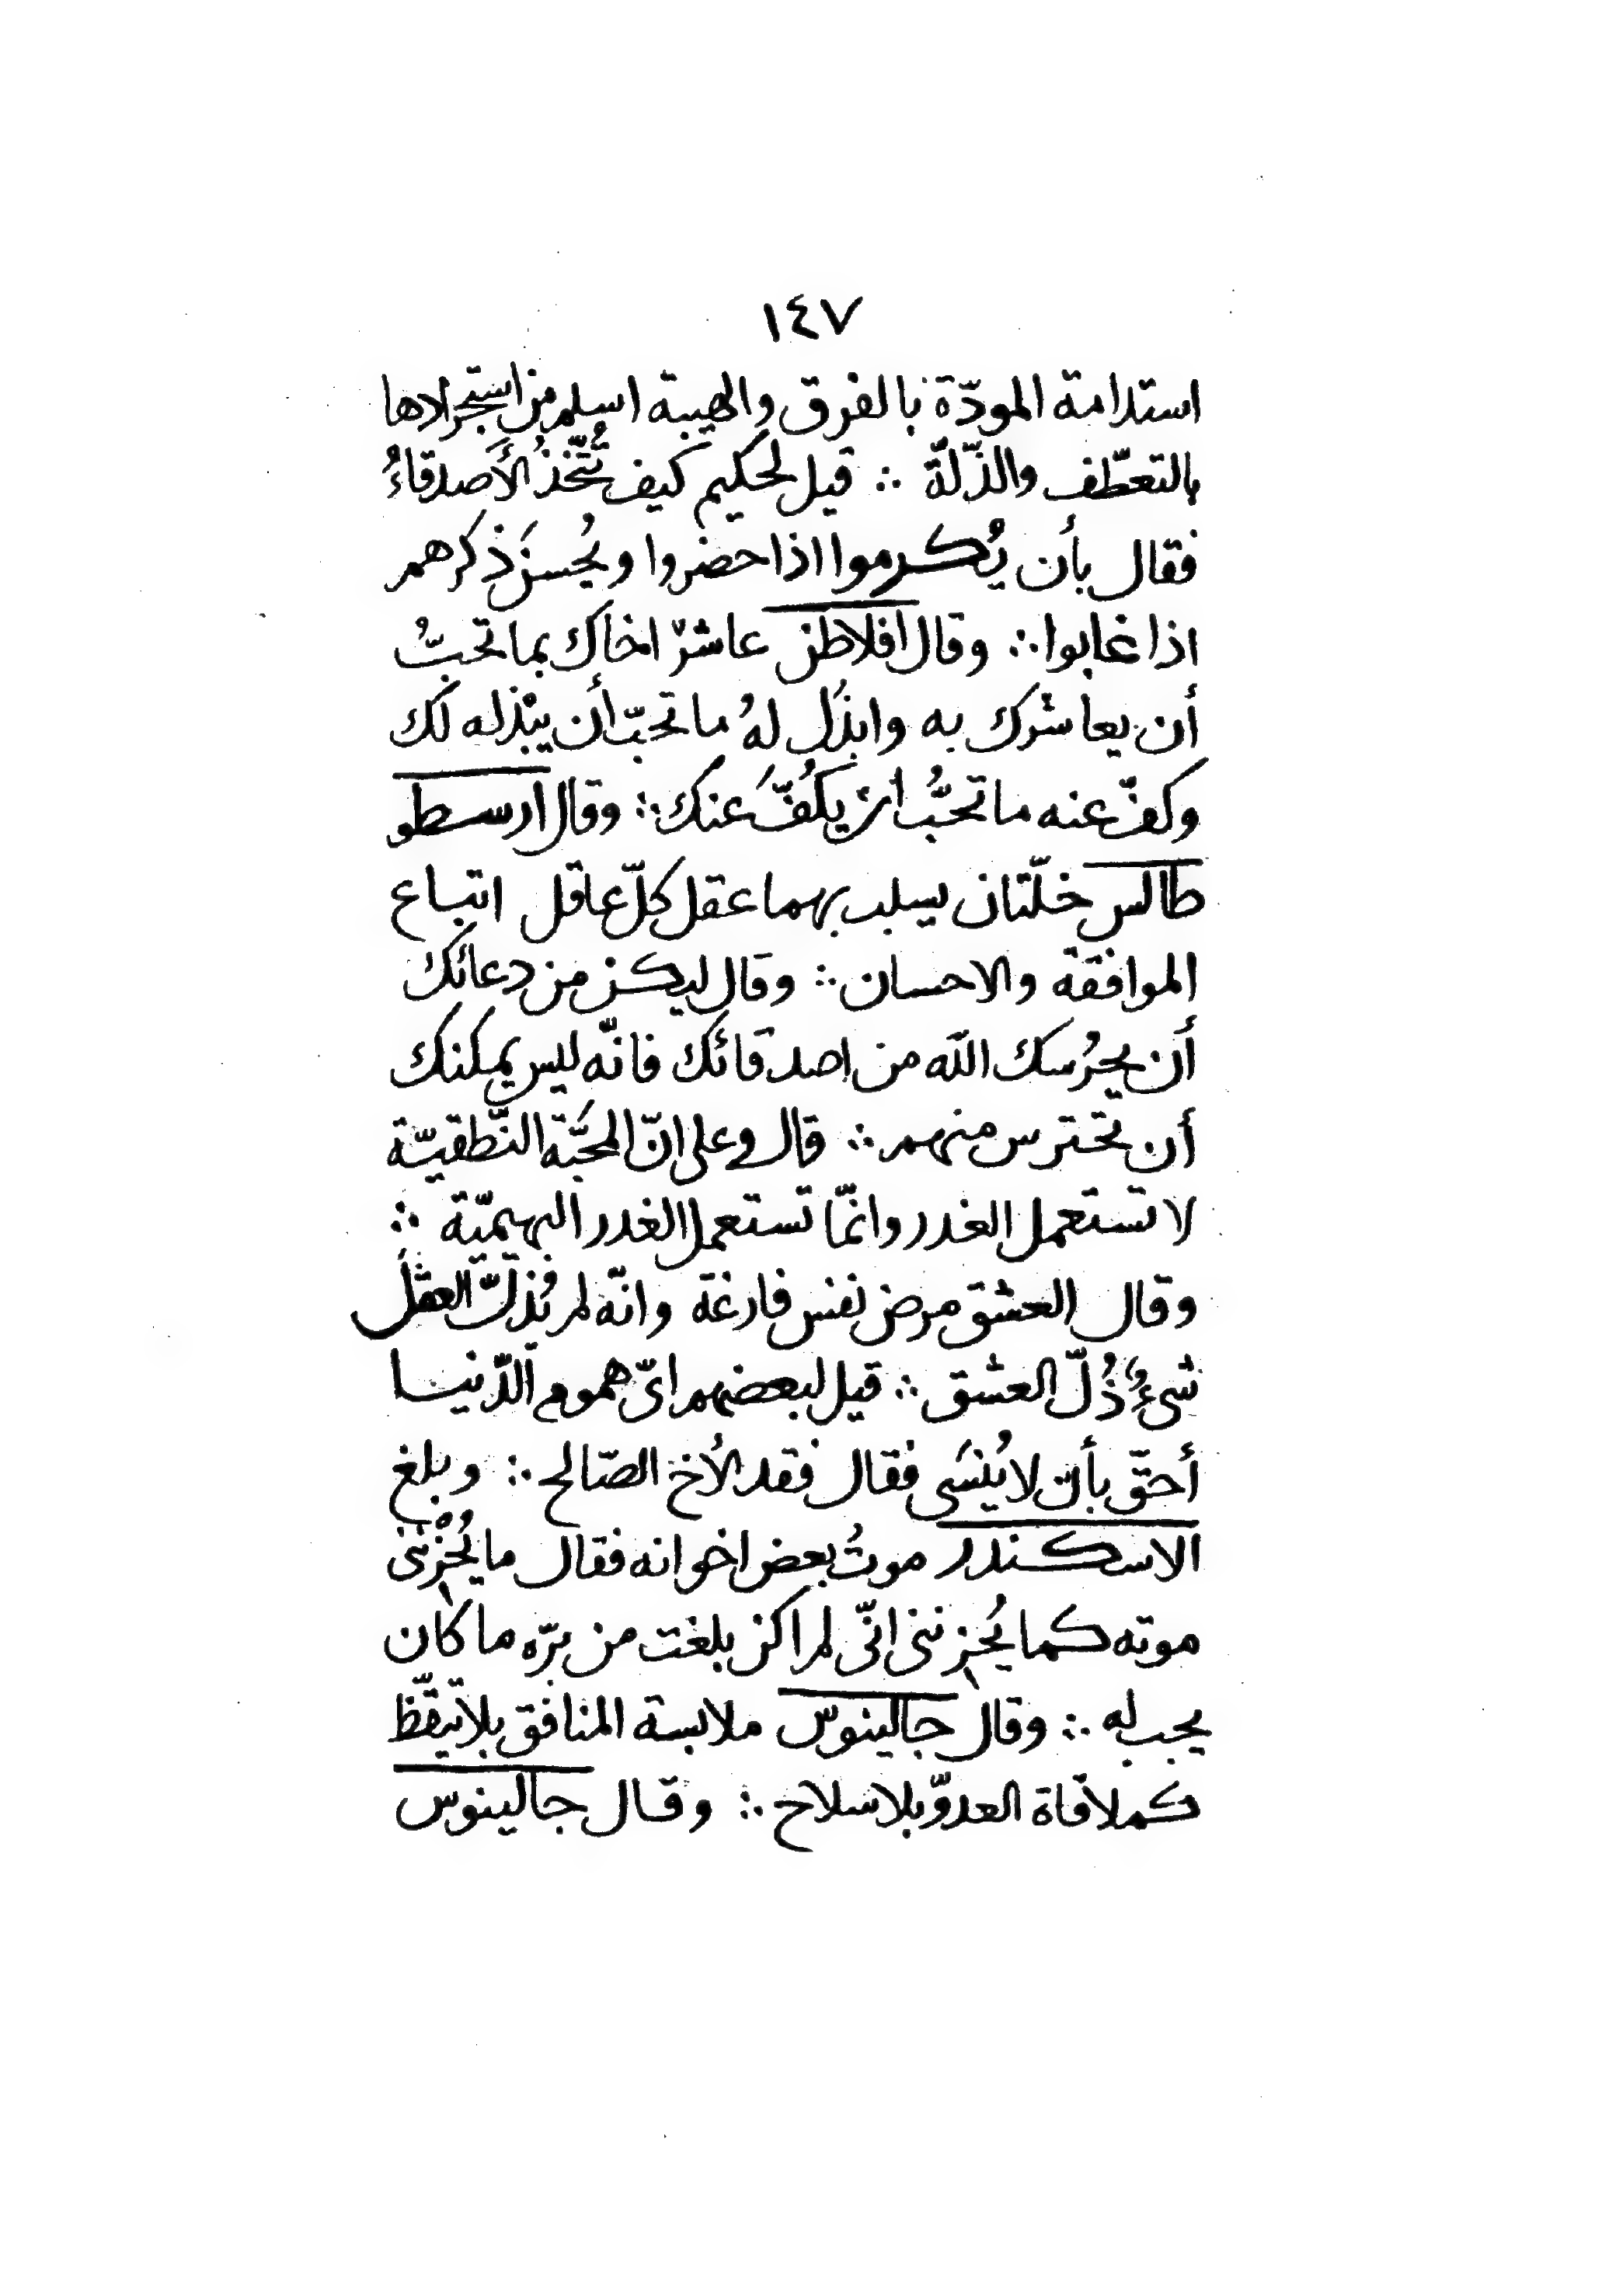 ١٤٧
استدامة المودّة بالفرق والهيبة اسلم من استجرارها
بالتعطّف والذّلّة ∴ قيل لحكيم كيف تُتّخذُ الأَصدقاءُ
فقال بأن يُكرموا اذا حضروا ويُحسنَ ذكرهم
اذا غابوا ∴ وقال افلاطن عاشرْ اخاك بما تحبُّ
أن يعاشرك به وابذُل لهُ ما تحبّ أن يبْذله لك
وكفّ عنه ما تحبُّ ان يكُفَّ عنك ∴ وقال ارسطو
طالس خلّتان يسلب بهما عقل كلّ عاقل اتباع
الموافقة والاحسان ∴ وقال ليكن من دعائك
أن يحرُسك اللّه من اصدقائك فانّه ليس يمكنك
أن تحترس منهم ∴ قال وعلى انّ المحبَّة النّطقيّة
لا تستعمل الغدر وانمّا تستعمل الغدر البهيميّة ∴
وقال العشق مرض نفس فارغة وانّه لم يُذلّ العقلَ
شىءٌ ذُلّ العشق ∴ قيل لبعضهم اىّ هموم الدّنيا
أحقّ بأن لا يُنسَى فقال فقد الأخ الصّالح ∴ وبلغ
الاسكندر موتُ بعض اخوانه فقال ما يُحْزنُنى
موته كما يُحزننى انّى لم اكن بلغت من برّه ما كان
يجب له ∴ وقال جالينوس ملابسة المنافق بلا تيقّظ
كملاقاة العدوّ بلا سلاح ∴ وقال جالينوس